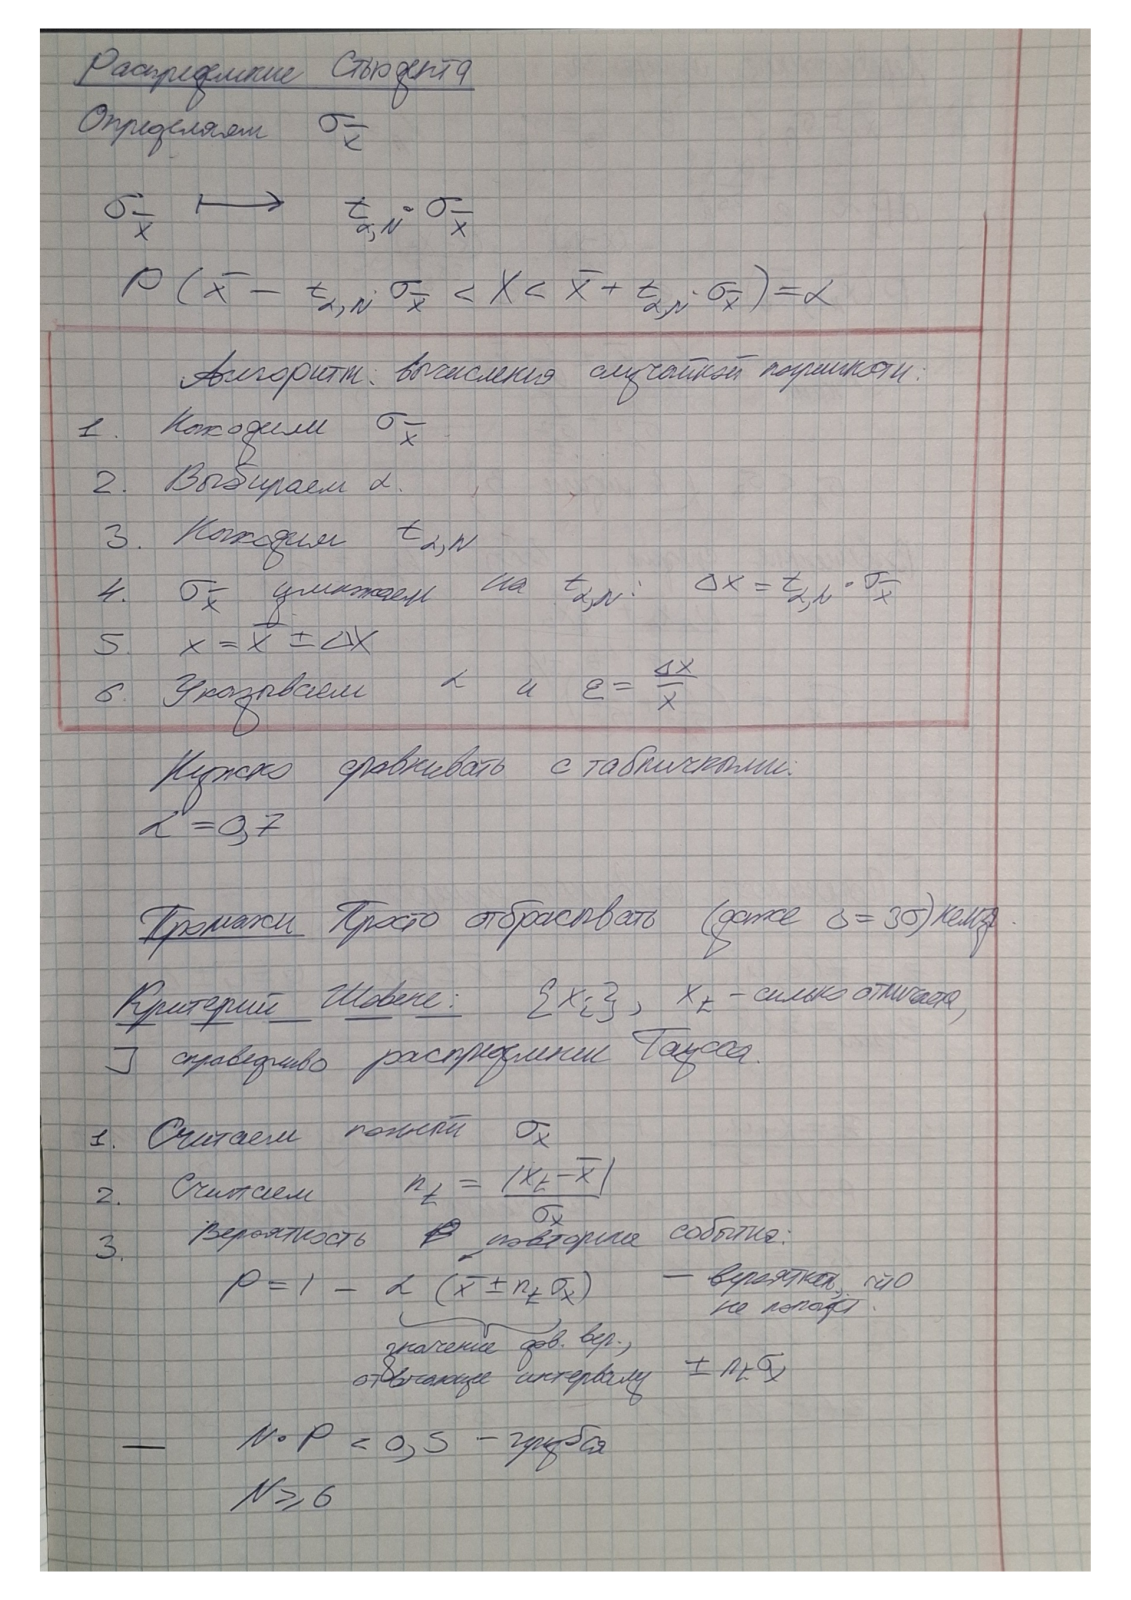 Распределение Стьюдента
Определяем σ_x̄
σ_x̄ ↦ t_{α,N} · σ_x̄
P(x̄ − t_{α,N} · σ_x̄ < X < x̄ + t_{α,N} · σ_x̄) = α
Алгоритм вычисления случайной погрешности:
1. Находим σ_x̄
2. Выбираем α.
3. Находим t_{α,N}
4. σ_x̄ умножаем на t_{α,N}: ΔX = t_{α,N} · σ_x̄
5. x = x̄ ± ΔX
6. Указываем α и ε = ΔX/x
Нужно сравнивать с табличными.
α = 0,7
Промахи Просто отбрасывать (даже Δ = 3σ) нельзя.
Критерий Шовене: {x_i}, x_t – сильно отличается,
] справедливо распределение Гаусса.
1. Считаем σ_x
2. Считаем n_t = |x_t − x̄| / σ_x
3. Вероятность P повторения события:
P = 1 − α (x̄ ± n_t σ_x) — вероятность, что
не попадёт.
значение дов. вер.,
отвечающее интервалу ± n_t σ_x
— N·P < 0,5 – грубая
N ≥ 6